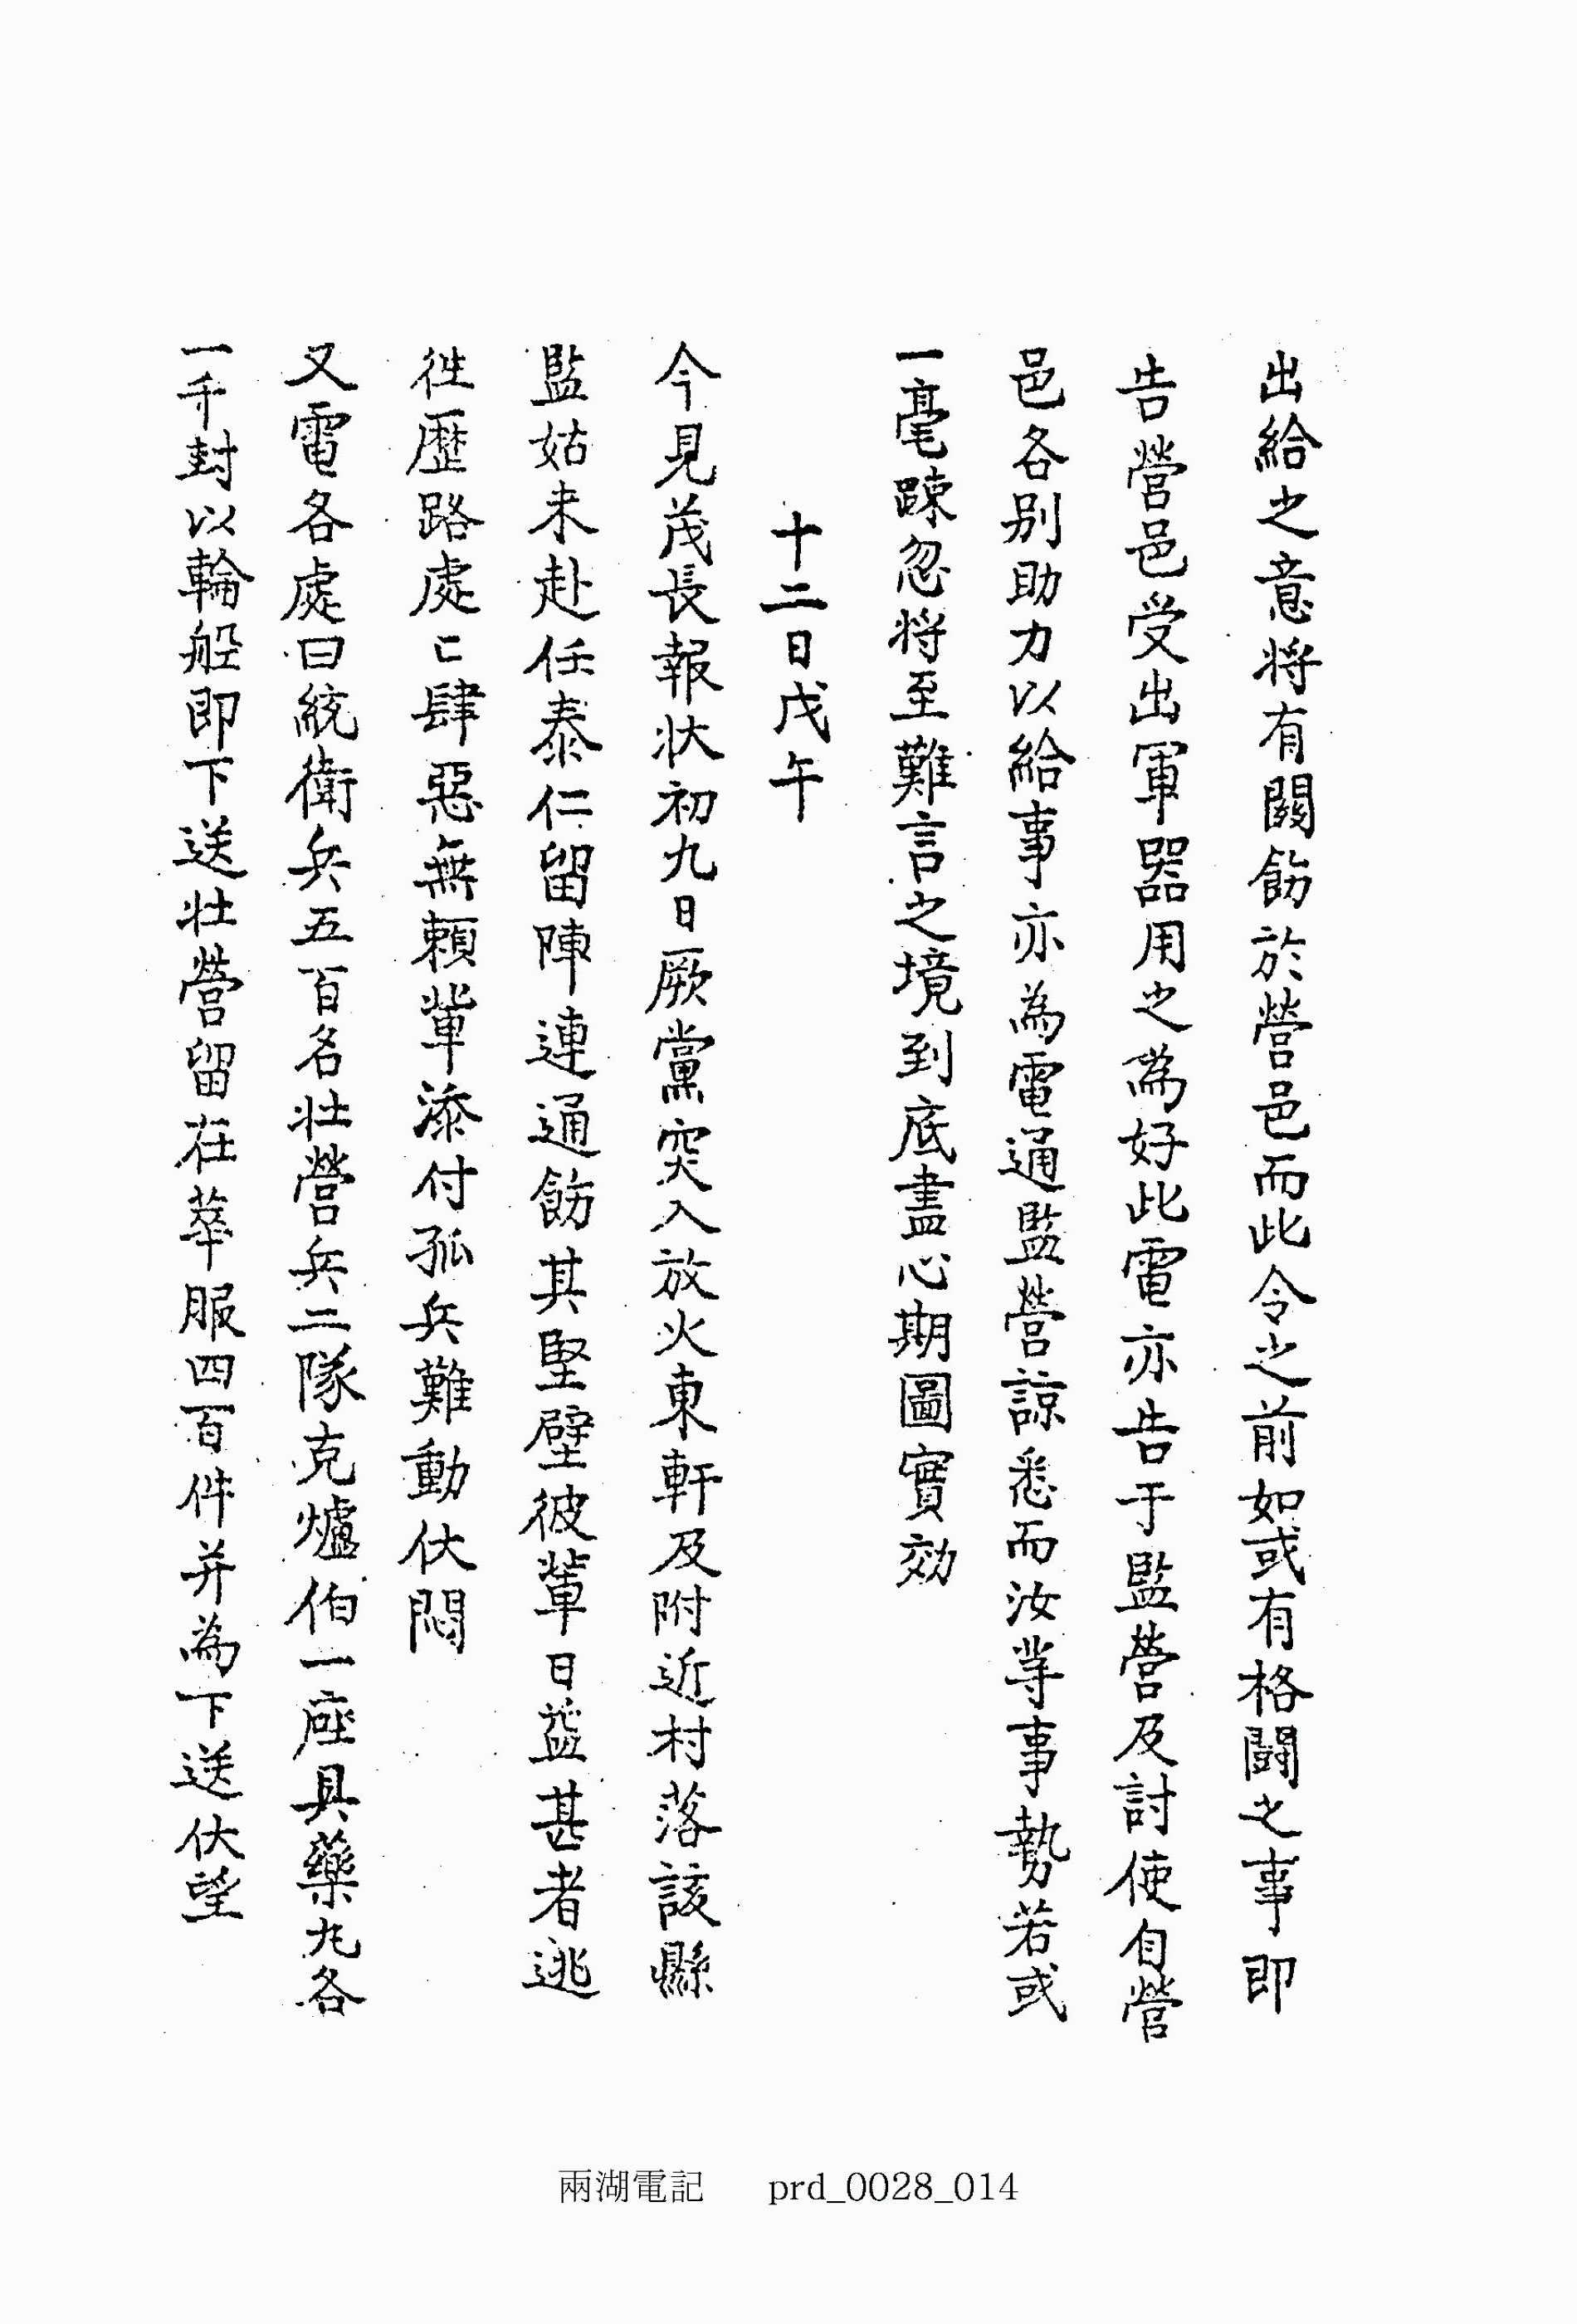 出給之意將有關飭於營邑而此令之前如或有格鬪之事即
告營邑受出軍器用之為好此電亦告于監營及討使自營
邑各別助力以給事亦為電通監營諒悉而汝等事勢若或
一毫踈忽將至難言之境到底盡心期圖實効
十二日戊午
今見茂長報狀初九日厥黨突入放火東軒及附近村落該縣
監姑未赴任泰仁留陣連通飭其堅壁彼輩日益甚者逃
徃歷路處〻肆惡無賴輩添付孤兵難動伏悶
又電各處曰統衛兵五百名壯營兵二隊克爐伯一座具藥丸各
一千封以輪船即下送壯營留在華服四百件并為下送伏望
兩湖電記 prd_0028_014